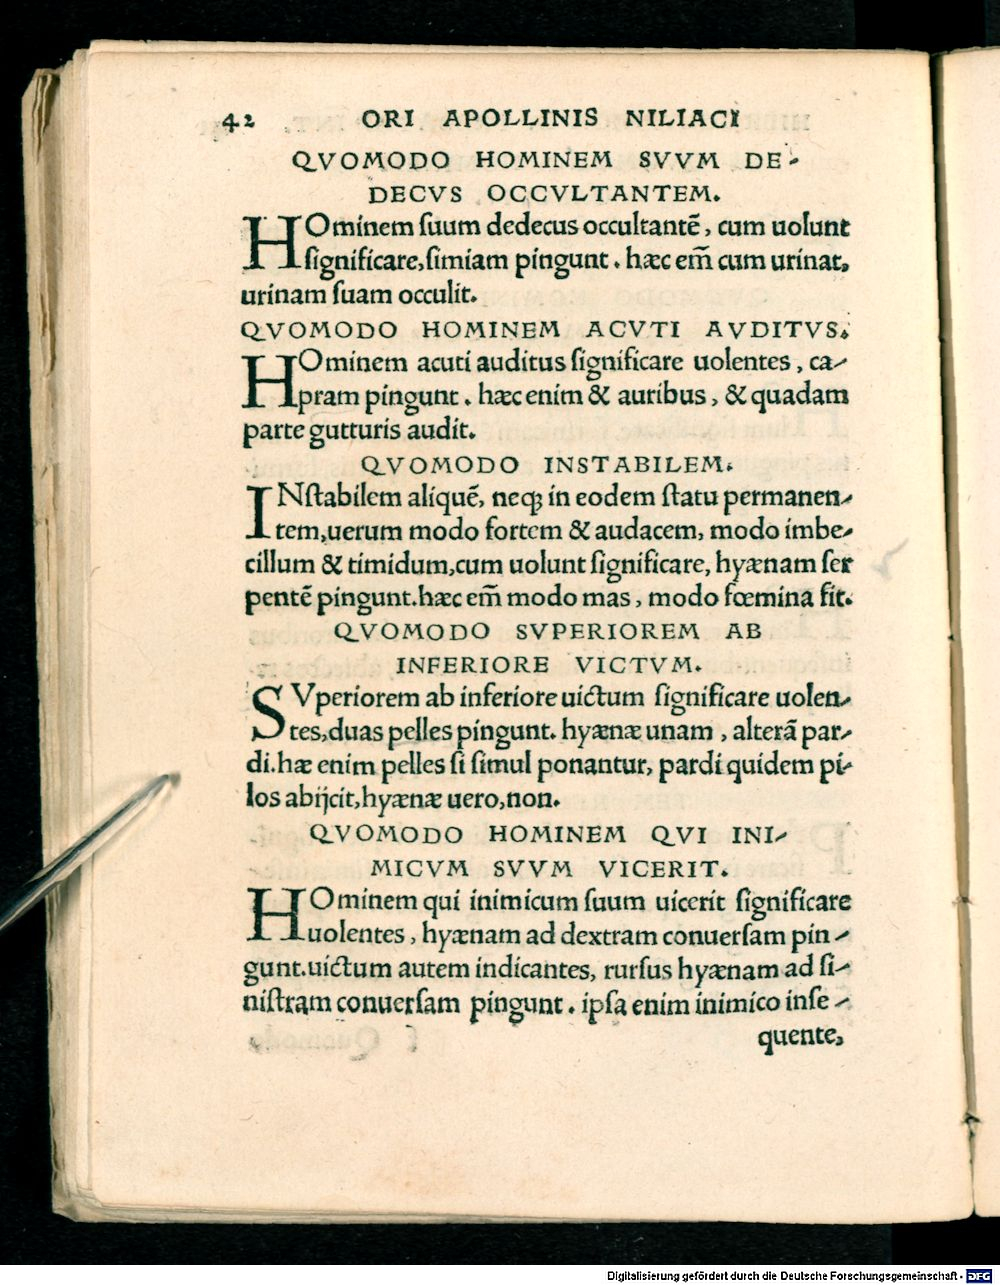 42 ORI APOLLINIS NILIACI
QVOMODO HOMINEM SVVM DE-
DECVS OCCVLTANTEM.
HOminem ſuum dedecus occultantē, cum uolunt
ſignificare,ſimiam pingunt. hæc em̃ cum urinat,
urinam ſuam occulit.
QVOMODO HOMINEM ACVTI AVDITVS.
HOminem acuti auditus ſignificare uolentes, ca-
pram pingunt. hæc enim & auribus, & quadam
parte gutturis audit.
QVOMODO INSTABILEM.
INſtabilem aliquē, neqꝫ in eodem ſtatu permanen-
tem,uerum modo fortem & audacem, modo imbe-
cillum & timidum,cum uolunt ſignificare, hyænam ſer
pentē pingunt.hæc em̃ modo mas, modo fœmina fit.
QVOMODO SVPERIOREM AB
INFERIORE VICTVM.
SVperiorem ab inferiore uictum ſignificare uolen-
tes,duas pelles pingunt. hyænæ unam, alterā par-
di.hæ enim pelles ſi ſimul ponantur, pardi quidem pi-
los abijcit,hyænæ uero,non.
QVOMODO HOMINEM QVI INI-
MICVM SVVM VICERIT.
HOminem qui inimicum ſuum uicerit ſignificare
uolentes, hyænam ad dextram conuerſam pin-
gunt.uictum autem indicantes, rurſus hyænam ad ſi-
niſtram conuerſam pingunt. ipſa enim inimico inſe-
quente,
Digitalisierung gefördert durch die Deutsche Forschungsgemeinschaft - DFG